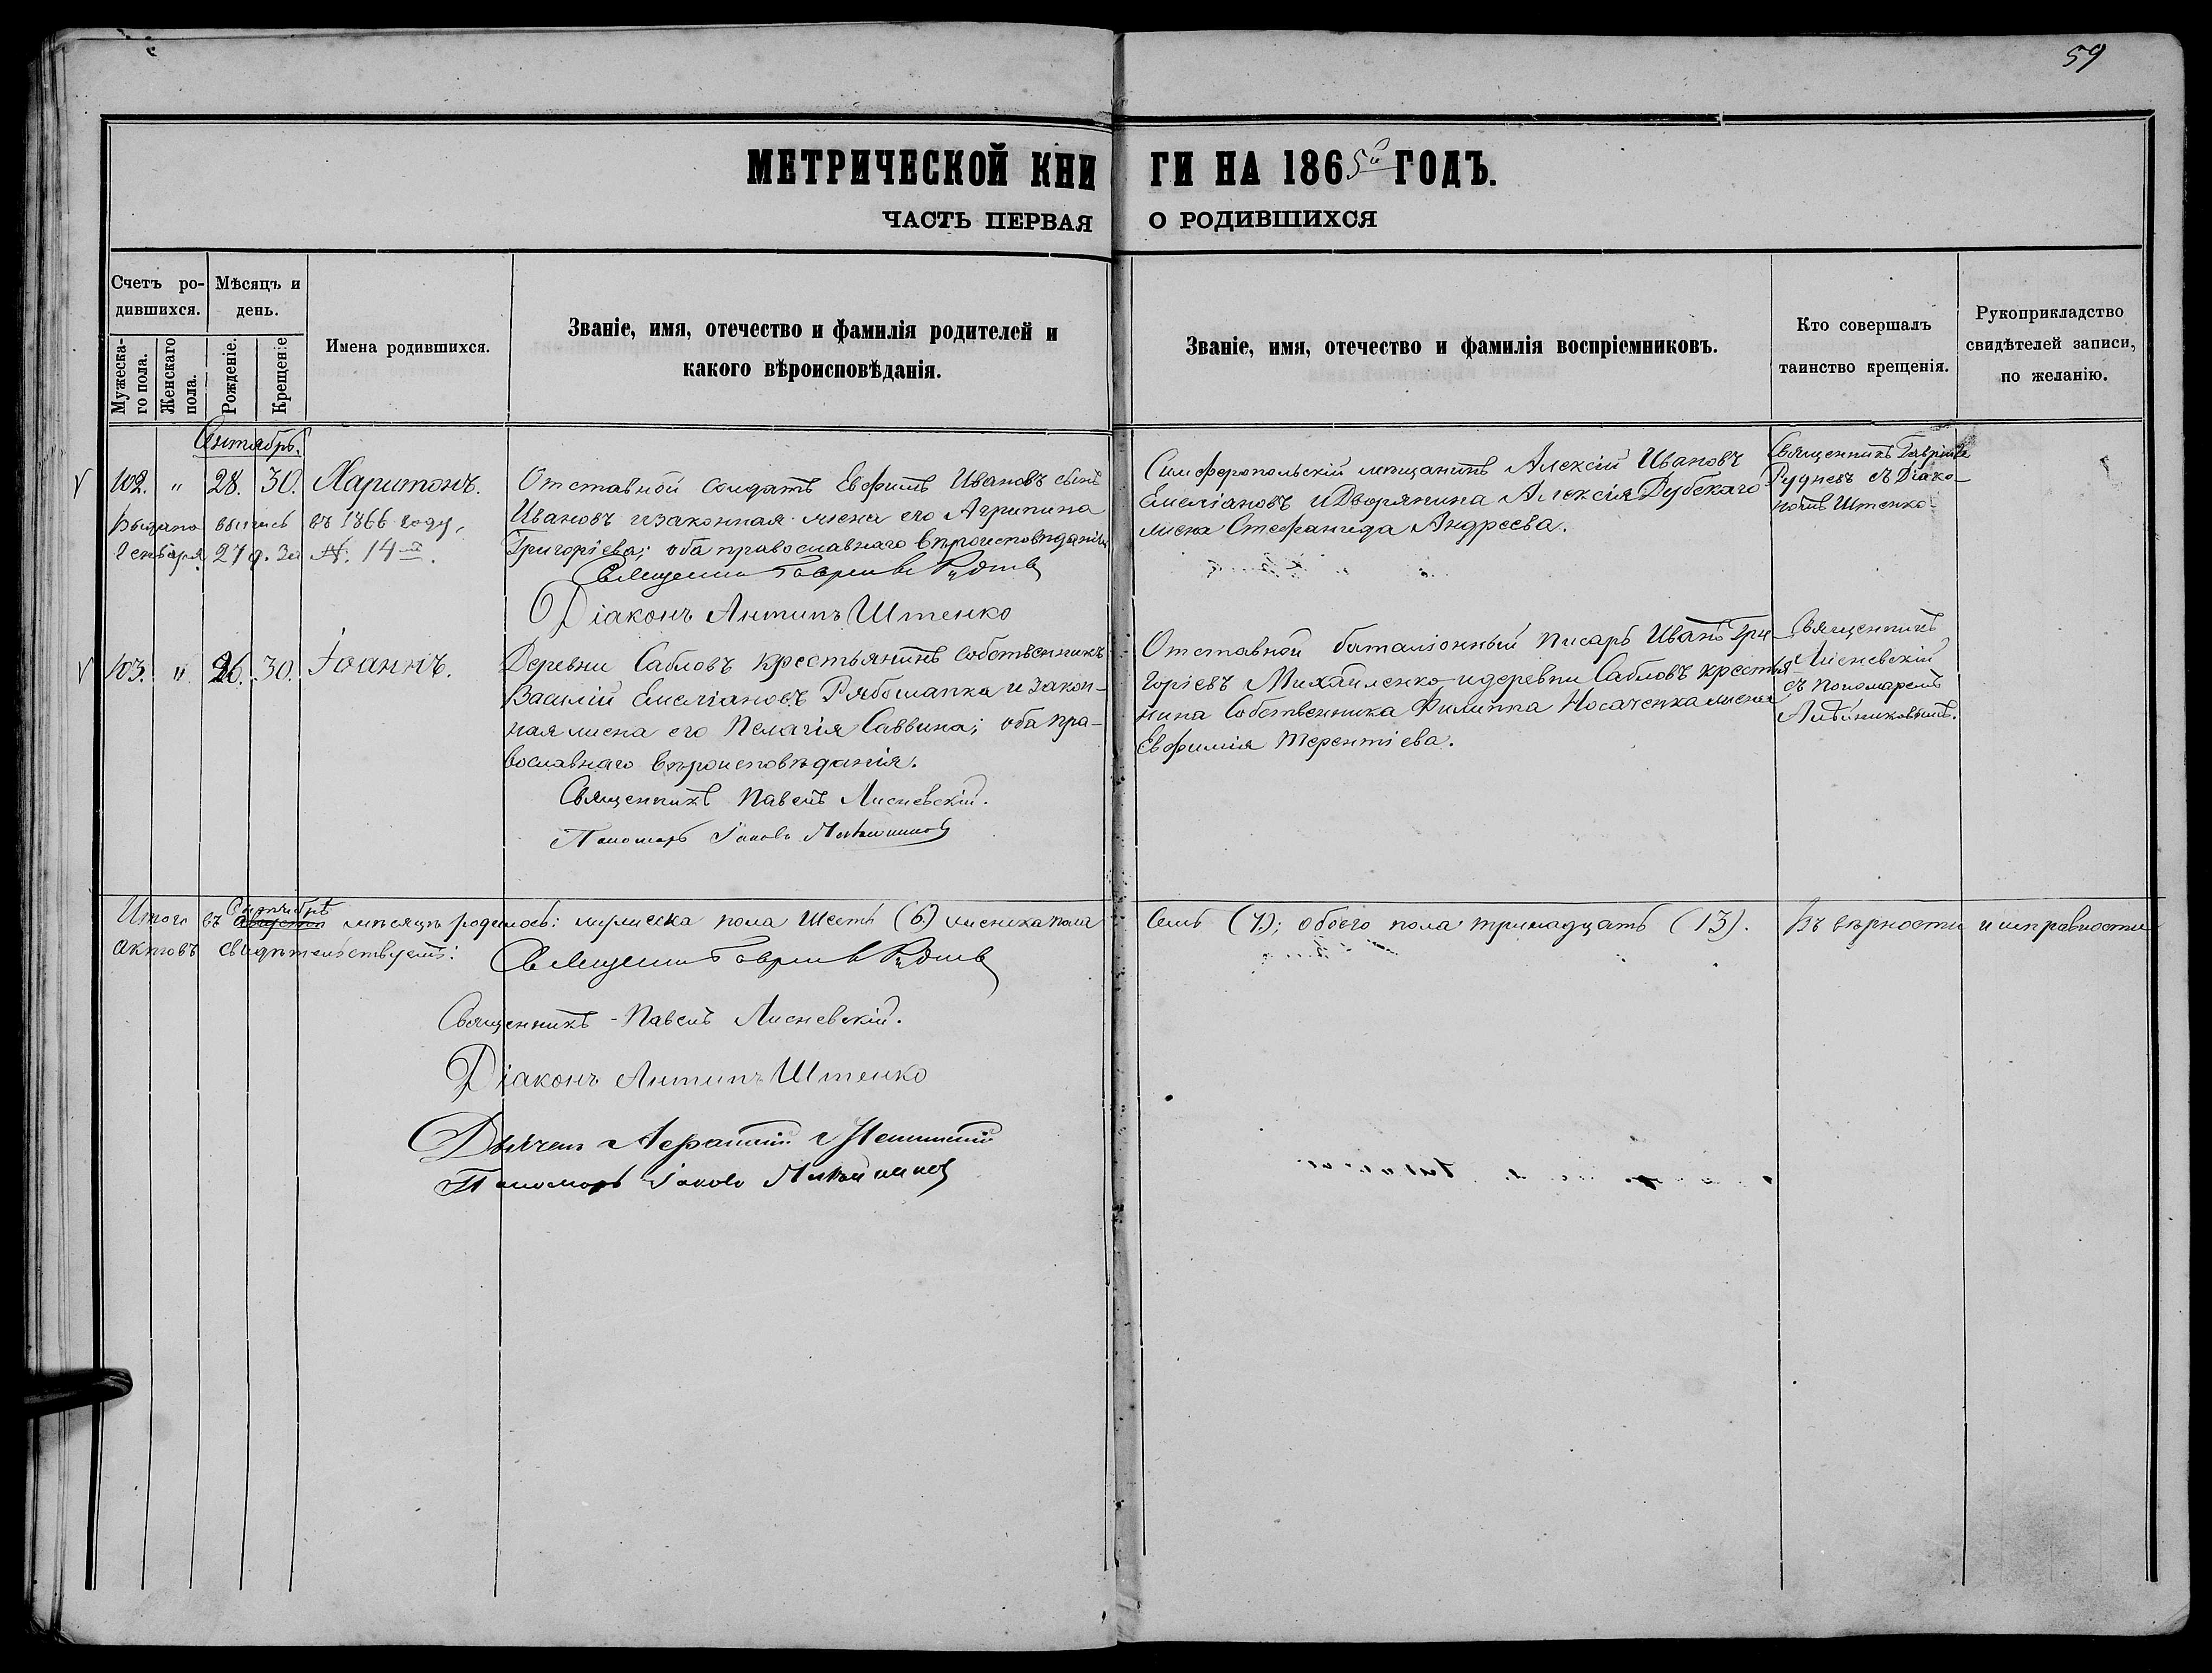 59
МЕТРИЧЕСКОЙ КНИГИ НА 1865й ГОДЪ.
ЧАСТЬ ПЕРВАЯ О РОДИВШИХСЯ
Счетъ ро-
дившихся.
Мужеска-
го пола.
Женскаго
пола.
Мѣсяцъ и
день.
Рожденіе.
Крещеніе
Имена родившихся.
Званіе, имя, отечество и фамилія родителей и
какого вѣроисповѣданія.
Званіе, имя, отечество и фамилія воспріемниковъ.
Кто совершалъ
таинство крещенія.
Рукоприкладство
свидѣтелей записи,
по желанію.
Сентябрь.
102. " 28. 30. Харитонъ.
Выдана выпись въ 1866 году,
Генваря 27 д. за №. 14-й.
Отставной солдатъ Евфимъ Ивановъ сынъ
Ивановъ и законная жена его Агрипина
Григоріева; оба православнаго вѣроисповѣданія
Священникъ Гавріилъ Рудневъ
Діаконъ Антипъ Штенко
Симферопольскій мѣщанинъ Алексій Ивановъ
Емеліановъ и Дворянина Алексія Дубскаго
жена Стефанида Андреева.
Священникъ Гавріилъ
Рудневъ съ Діако-
номъ Штенко
103. " 26. 30. Іоаннъ.
Деревни Сабловъ крестьянинъ собственникъ
Василій Емеліановъ Рябошапка и закон-
ная жена его Пелагія Саввина; оба пра-
вославнаго вѣроисповѣданія.
Священникъ Павелъ Лисневскій.
Пономарь Іаковъ
Отставной баталіонный писарь Иванъ Гри-
горіевъ Михайленко и деревни Сабловъ крестья-
нина собственника Филиппа Носаченка жена
Евфимія Терентіева.
Священникъ
Лисневскій
съ пономаремъ
Итого въ Августѣ Сентябрѣ мѣсяцѣ родилось: мужеска пола шесть (6) женска пола семь (7); обоего пола тринадцать (13). Въ вѣрности и исправности
актовъ свидѣтельствуемъ:
Священникъ Гавріилъ Рудневъ
Священникъ Павелъ Лисневскій.
Діаконъ Антипъ Штенко
Дьячекъ
Пономарь Іаковъ